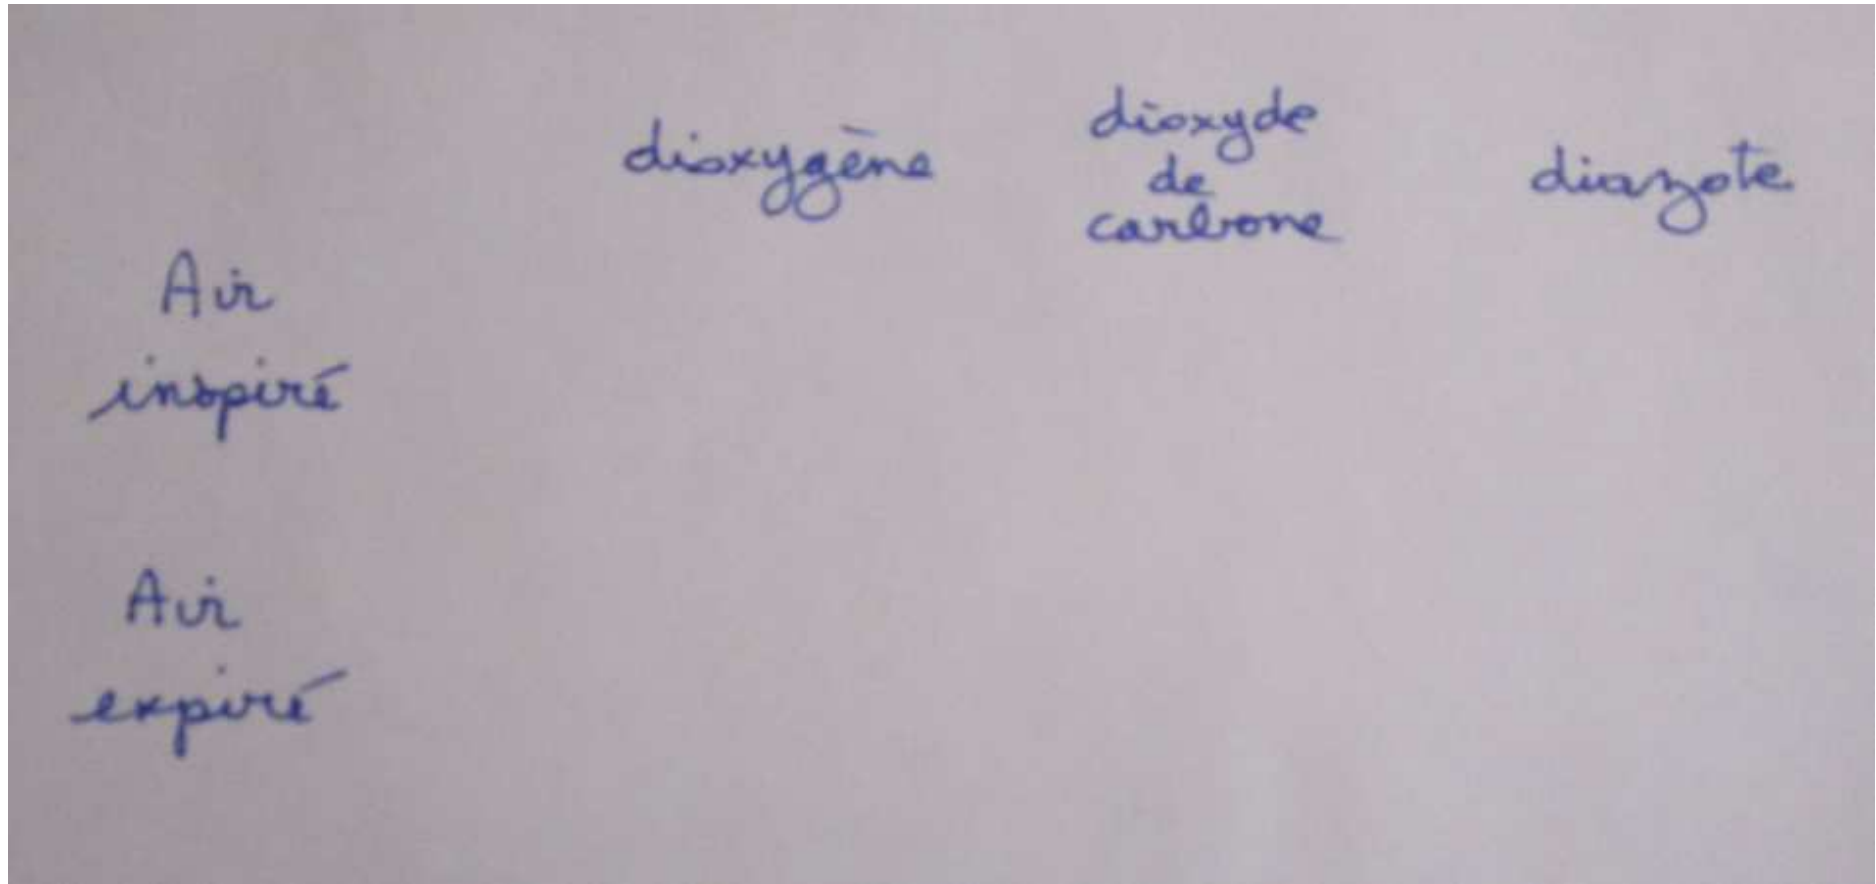 dioxygène
dioxyde
de
carbone
diazote
Air
inspiré
Air
expiré